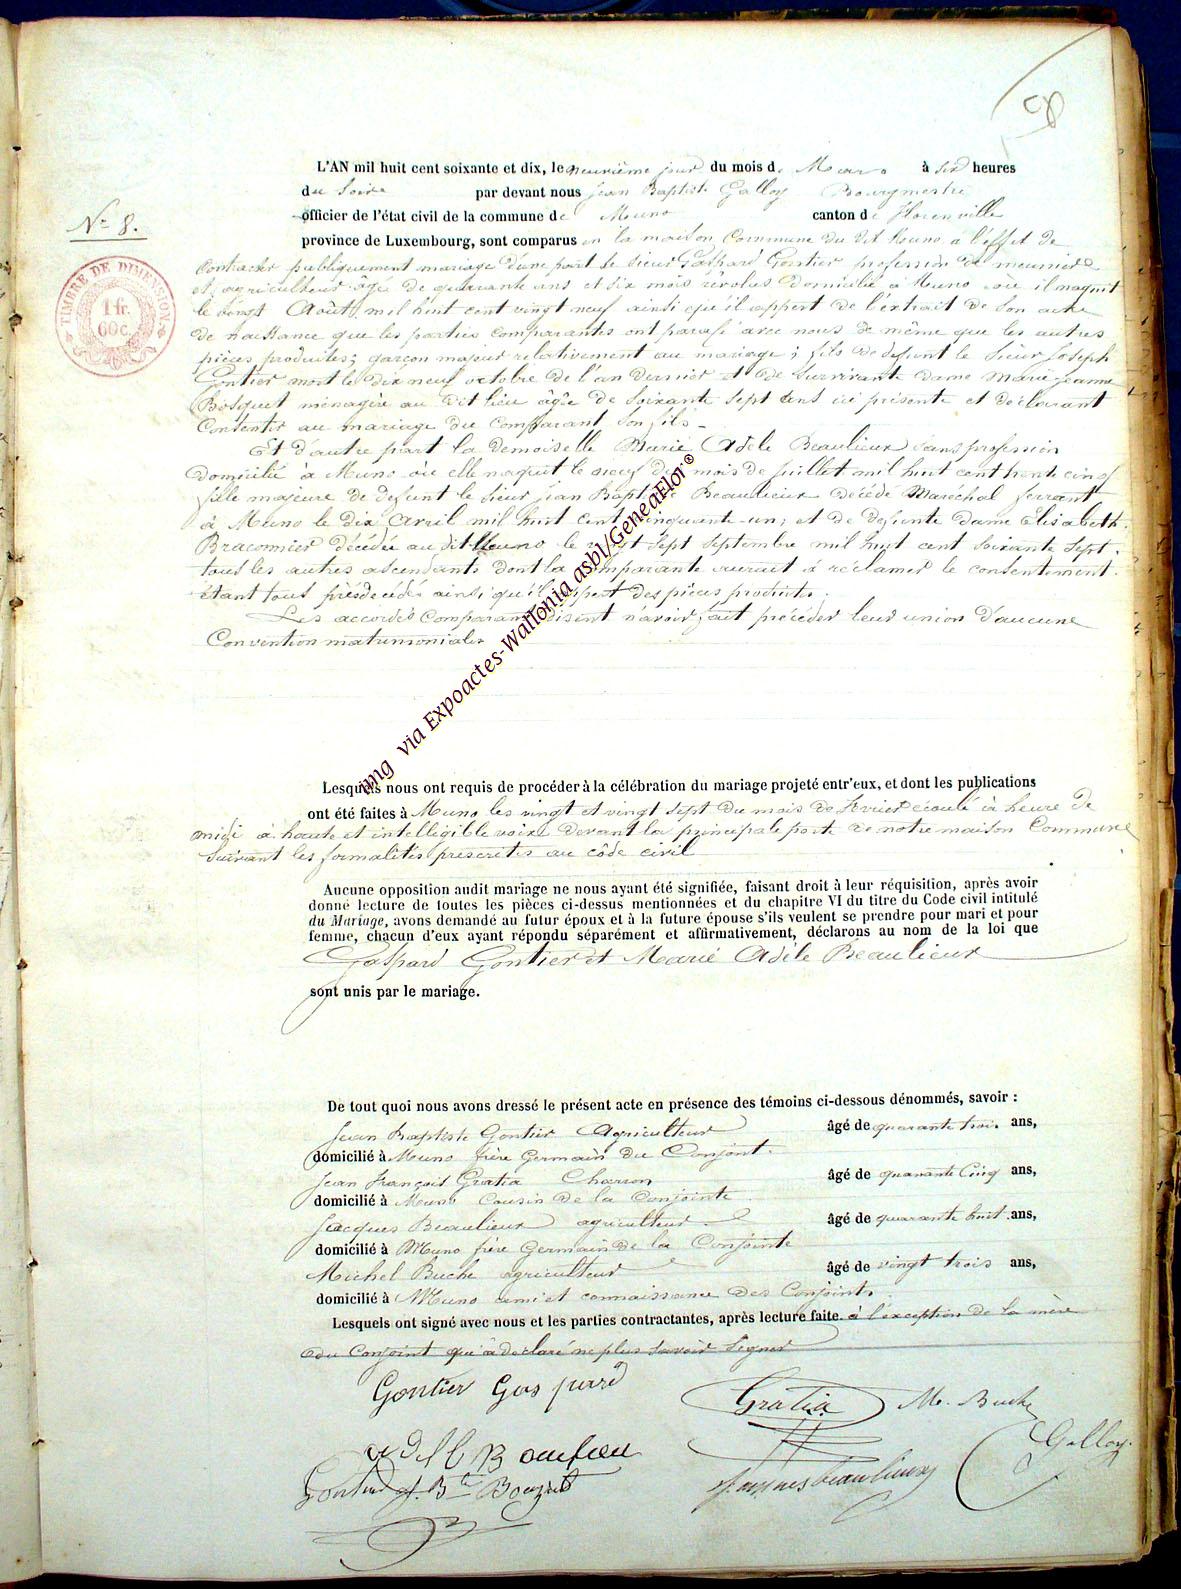 N° 8.
TIMBRE DE DIMENSION
1 fr.
60 c.
L'AN mil huit cent soixante et dix, le neuvième jour du mois de Mars à six heures
du soire par devant nous Jean Baptiste Galloy Bourgmestre
officier de l'état civil de la commune de Muno canton de Florenville
province de Luxembourg, sont comparus en la maison Commune du dit Muno à l'effet de
Contracter publiquement mariage d'une part le sieur Gaspard Gontier profession de meunier
et agriculteur âgé de quarante ans et six mois révolus Domicilié à Muno où il naquit
le vingt Août mil huit cent vingt neuf ainsi qu'il appert de l'extrait de son acte
de naissance que les parties comparantes ont parafé avec nous de même que les autres
pièces produites; garçon majeur relativement au mariage; fils de defunt le Sieur Joseph
Gontier mort le dix neuf octobre de l'an dernier et de survivante dame Marie Jeanne
Bosquet ménagère au dit lieu âgée de soixante sept ans ici présente et déclarant
Consentir au mariage du comparant son fils
Et d'autre part la demoiselle Marie Adèle Beaulieux sans profession
domiciliée à Muno où elle naquit le neuf du mois de Juillet mil huit cent trente cinq
fille majeure de defunt le Sieur Jean Baptiste Beaulieux décédé Maréchal ferrant
à Muno le dix Avril mil huit cent cinquante un; et de defunte dame Elisabeth
Braconnier décédée au dit Muno le vingt sept septembre mil huit cent soixante sept.
tous les autres ascendants dont la comparante aurait à réclamer le consentement
étant tous prédécédés ainsi qu'il appert des pièces produites.
Les accordés Comparants disent n'avoir fait précéder leur union d'aucune
Convention matrimoniale
img via Expoactes-Wallonia asbl/GeneaFlor®
Lesquels nous ont requis de procéder à la célébration du mariage projeté entr'eux, et dont les publications
ont été faites à Muno les vingt et vingt sept du mois de fevrier écoulé à heure de
midi à haute et intelligible voix devant la principale porte de notre maison Commune
suivant les formalités prescrites au côde civil
Aucune opposition audit mariage ne nous ayant été signifiée, faisant droit à leur réquisition, après avoir
donné lecture de toutes les pièces ci-dessus mentionnées et du chapitre VI du titre du Code civil intitulé
du Mariage, avons demandé au futur époux et à la future épouse s'ils veulent se prendre pour mari et pour
femme, chacun d'eux ayant répondu séparément et affirmativement, déclarons au nom de la loi que
Gaspard Gontier et Marie Adèle Beaulieux
sont unis par le mariage.
De tout quoi nous avons dressé le présent acte en présence des témoins ci-dessous dénommés, savoir :
Jean Baptiste Gontier Agriculteur âgé de quarante trois ans,
domicilié à Muno frère Germain du Conjoint.
Jean François Gratia Charron âgé de quarante Cinq ans,
domicilié à Muno Cousin de la Conjointe
Jacques Beaulieux agriculteur âgé de quarante huit ans,
domicilié à Muno frère Germain de la Conjointe
Michel Buche agriculteur âgé de vingt trois ans,
domicilié à Muno ami et connaissance des Conjoints.
Lesquels ont signé avec nous et les parties contractantes, après lecture faite à l'exception de la mère
du Conjoint qui a declaré ne plus savoir signer
Gontier Gaspard
Gratia M. Buche
Galloy
Gontier J. Bte
Jacques beaulieux